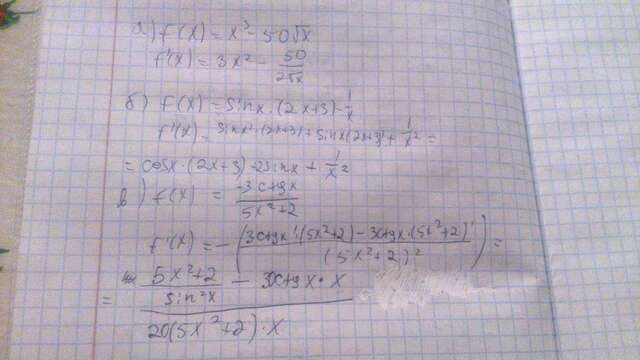 а) f(x) = x³ - 50√x
f'(x) = 3x² - 50/2√x
б) f(x) = sinx·(2x+3) - 1/x
f'(x) = sinx'·(2x+3) + sinx(2x+3)' + 1/x² =
= cosx·(2x+3) + 2sinx + 1/x²
в) f(x) = -3ctgx/5x²+2
f'(x) = -(3ctgx'(5x²+2) - 3ctgx·(5x²+2)'/(5x²+2)²) =
= 5x²+2/sin²x - 3ctgx·x
20(5x²+2)·x